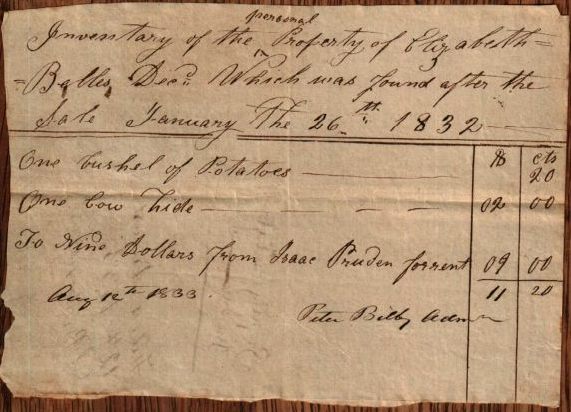 Inventory of the personal Property of Elizabeth=
=Balles Decd. Which was found after the
Sale January The 26th 1832
$ cts
One bushel of Potatoes 20
One Cow hide 02 00
To Nine Dollars from Isaac Pruden for rent 09 00
Aug 12th 1833. 11 20
Peter Bilby Admr